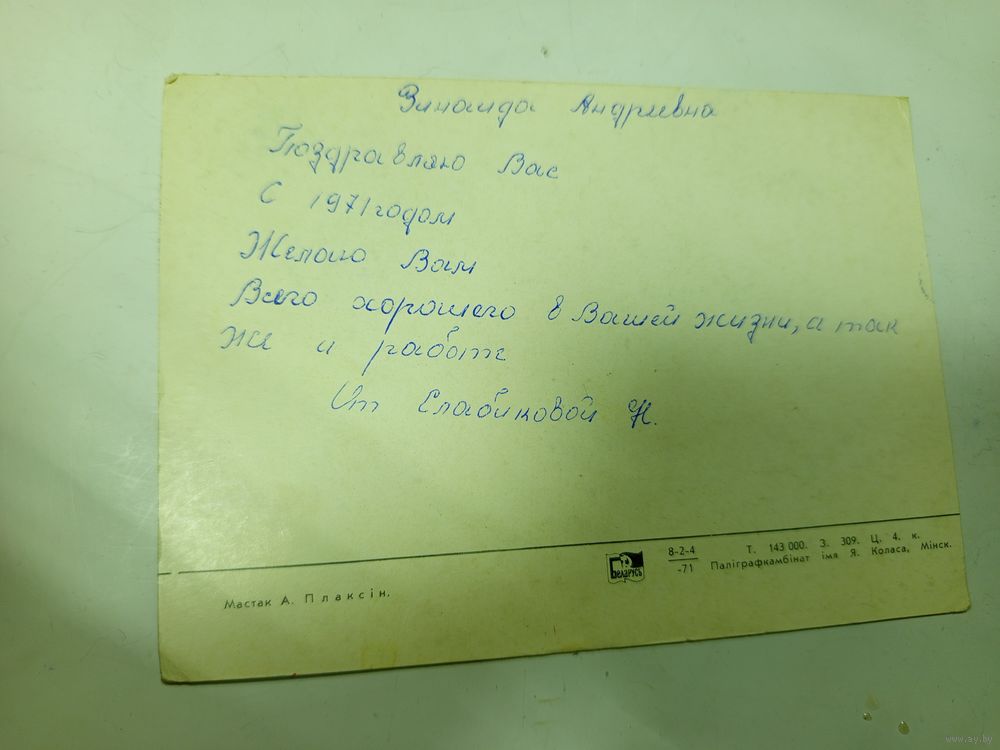 Зинаида Андриевна
Поздравляю Вас
С 1971 годом
Желаю Вам
Всего хорошего в Вашей жизни, а так
же и работе
От Слабиковой Н.
Мастак А. Плаксін.
Беларусь
8-2-4
-71
Т. 143 000. З. 309. Ц. 4. к.
Паліграфкамбінат імя Я. Коласа, Мінск.
www.ay.by